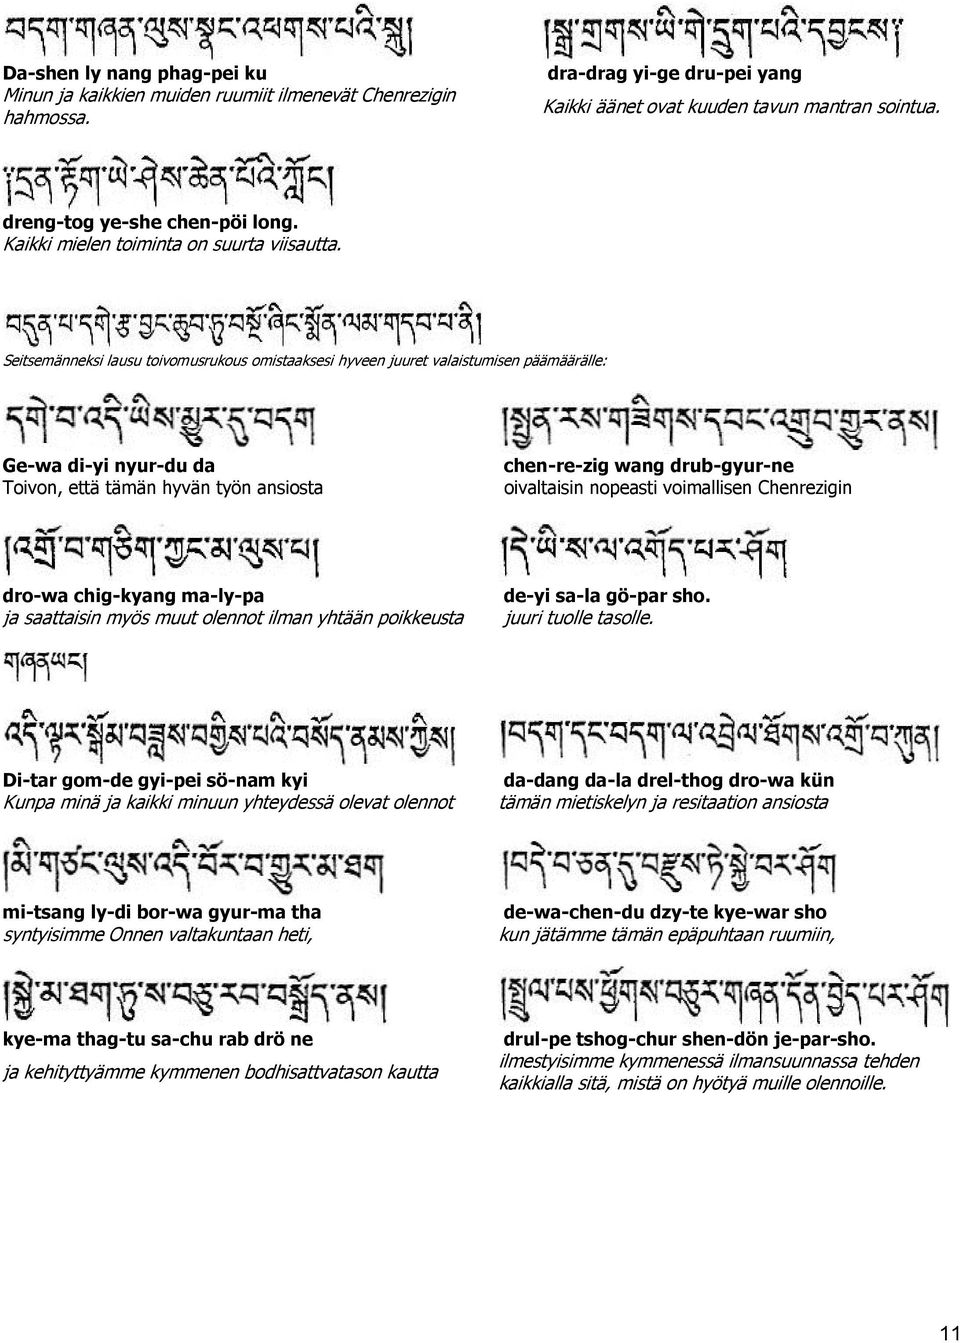 བདག་གཞན་ལུས་སྣང་འཕགས་པའི་སྐུ།
།སྒྲ་གྲགས་ཡི་གེ་དྲུག་པའི་དབྱངས༔
Da-shen ly nang phag-pei ku
dra-drag yi-ge dru-pei yang
Minun ja kaikkien muiden ruumiit ilmenevät Chenrezigin
hahmossa.
Kaikki äänet ovat kuuden tavun mantran sointua.
༔དྲན་རྟོག་ཡེ་ཤེས་ཆེན་པོའི་ཀློང།
dreng-tog ye-she chen-pöi long.
Kaikki mielen toiminta on suurta viisautta.
བདུན་པ་དགེ་རྩ་བྱང་ཆུབ་ཏུ་བསྔོ་ཞིང་སྨོན་ལམ་གདབ་པ་ནི།
Seitsemänneksi lausu toivomusrukous omistaaksesi hyveen juuret valaistumisen päämäärälle:
དགེ་བ་འདི་ཡིས་མྱུར་དུ་བདག
།སྤྱན་རས་གཟིགས་དབང་འགྲུབ་གྱུར་ནས།
Ge-wa di-yi nyur-du da
chen-re-zig wang drub-gyur-ne
Toivon, että tämän hyvän työn ansiosta
oivaltaisin nopeasti voimallisen Chenrezigin
།འགྲོ་བ་གཅིག་ཀྱང་མ་ལུས་པ།
།དེ་ཡི་ས་ལ་འགོད་པར་ཤོག
dro-wa chig-kyang ma-ly-pa
de-yi sa-la gö-par sho.
ja saattaisin myös muut olennot ilman yhtään poikkeusta
juuri tuolle tasolle.
གཞནཡང།
འདི་ལྟར་སྒོམ་བཟླས་བགྱིས་པའི་བསོད་ནམས་ཀྱིས།
།བདག་དང་བདག་ལ་འབྲེལ་ཐོགས་འགྲོ་བ་ཀུན།
Di-tar gom-de gyi-pei sö-nam kyi
da-dang da-la drel-thog dro-wa kün
Kunpa minä ja kaikki minuun yhteydessä olevat olennot
tämän mietiskelyn ja resitaation ansiosta
།མི་གཙང་ལུས་འདི་བོར་བ་གྱུར་མ་ཐག
།བདེ་བ་ཅན་དུ་བརྫུས་ཏེ་སྐྱེ་བར་ཤོག
mi-tsang ly-di bor-wa gyur-ma tha
de-wa-chen-du dzy-te kye-war sho
syntyisimme Onnen valtakuntaan heti,
kun jätämme tämän epäpuhtaan ruumiin,
།སྐྱེ་མ་ཐག་ཏུ་ས་བཅུ་རབ་བསྒྲོད་ནས།
།སྤྲུལ་པས་ཕྱོགས་བཅུར་གཞན་དོན་བྱེད་པར་ཤོག
kye-ma thag-tu sa-chu rab drö ne
drul-pe tshog-chur shen-dön je-par-sho.
ja kehityttyämme kymmenen bodhisattvatason kautta
ilmestyisimme kymmenessä ilmansuunnassa tehden
kaikkialla sitä, mistä on hyötyä muille olennoille.
11